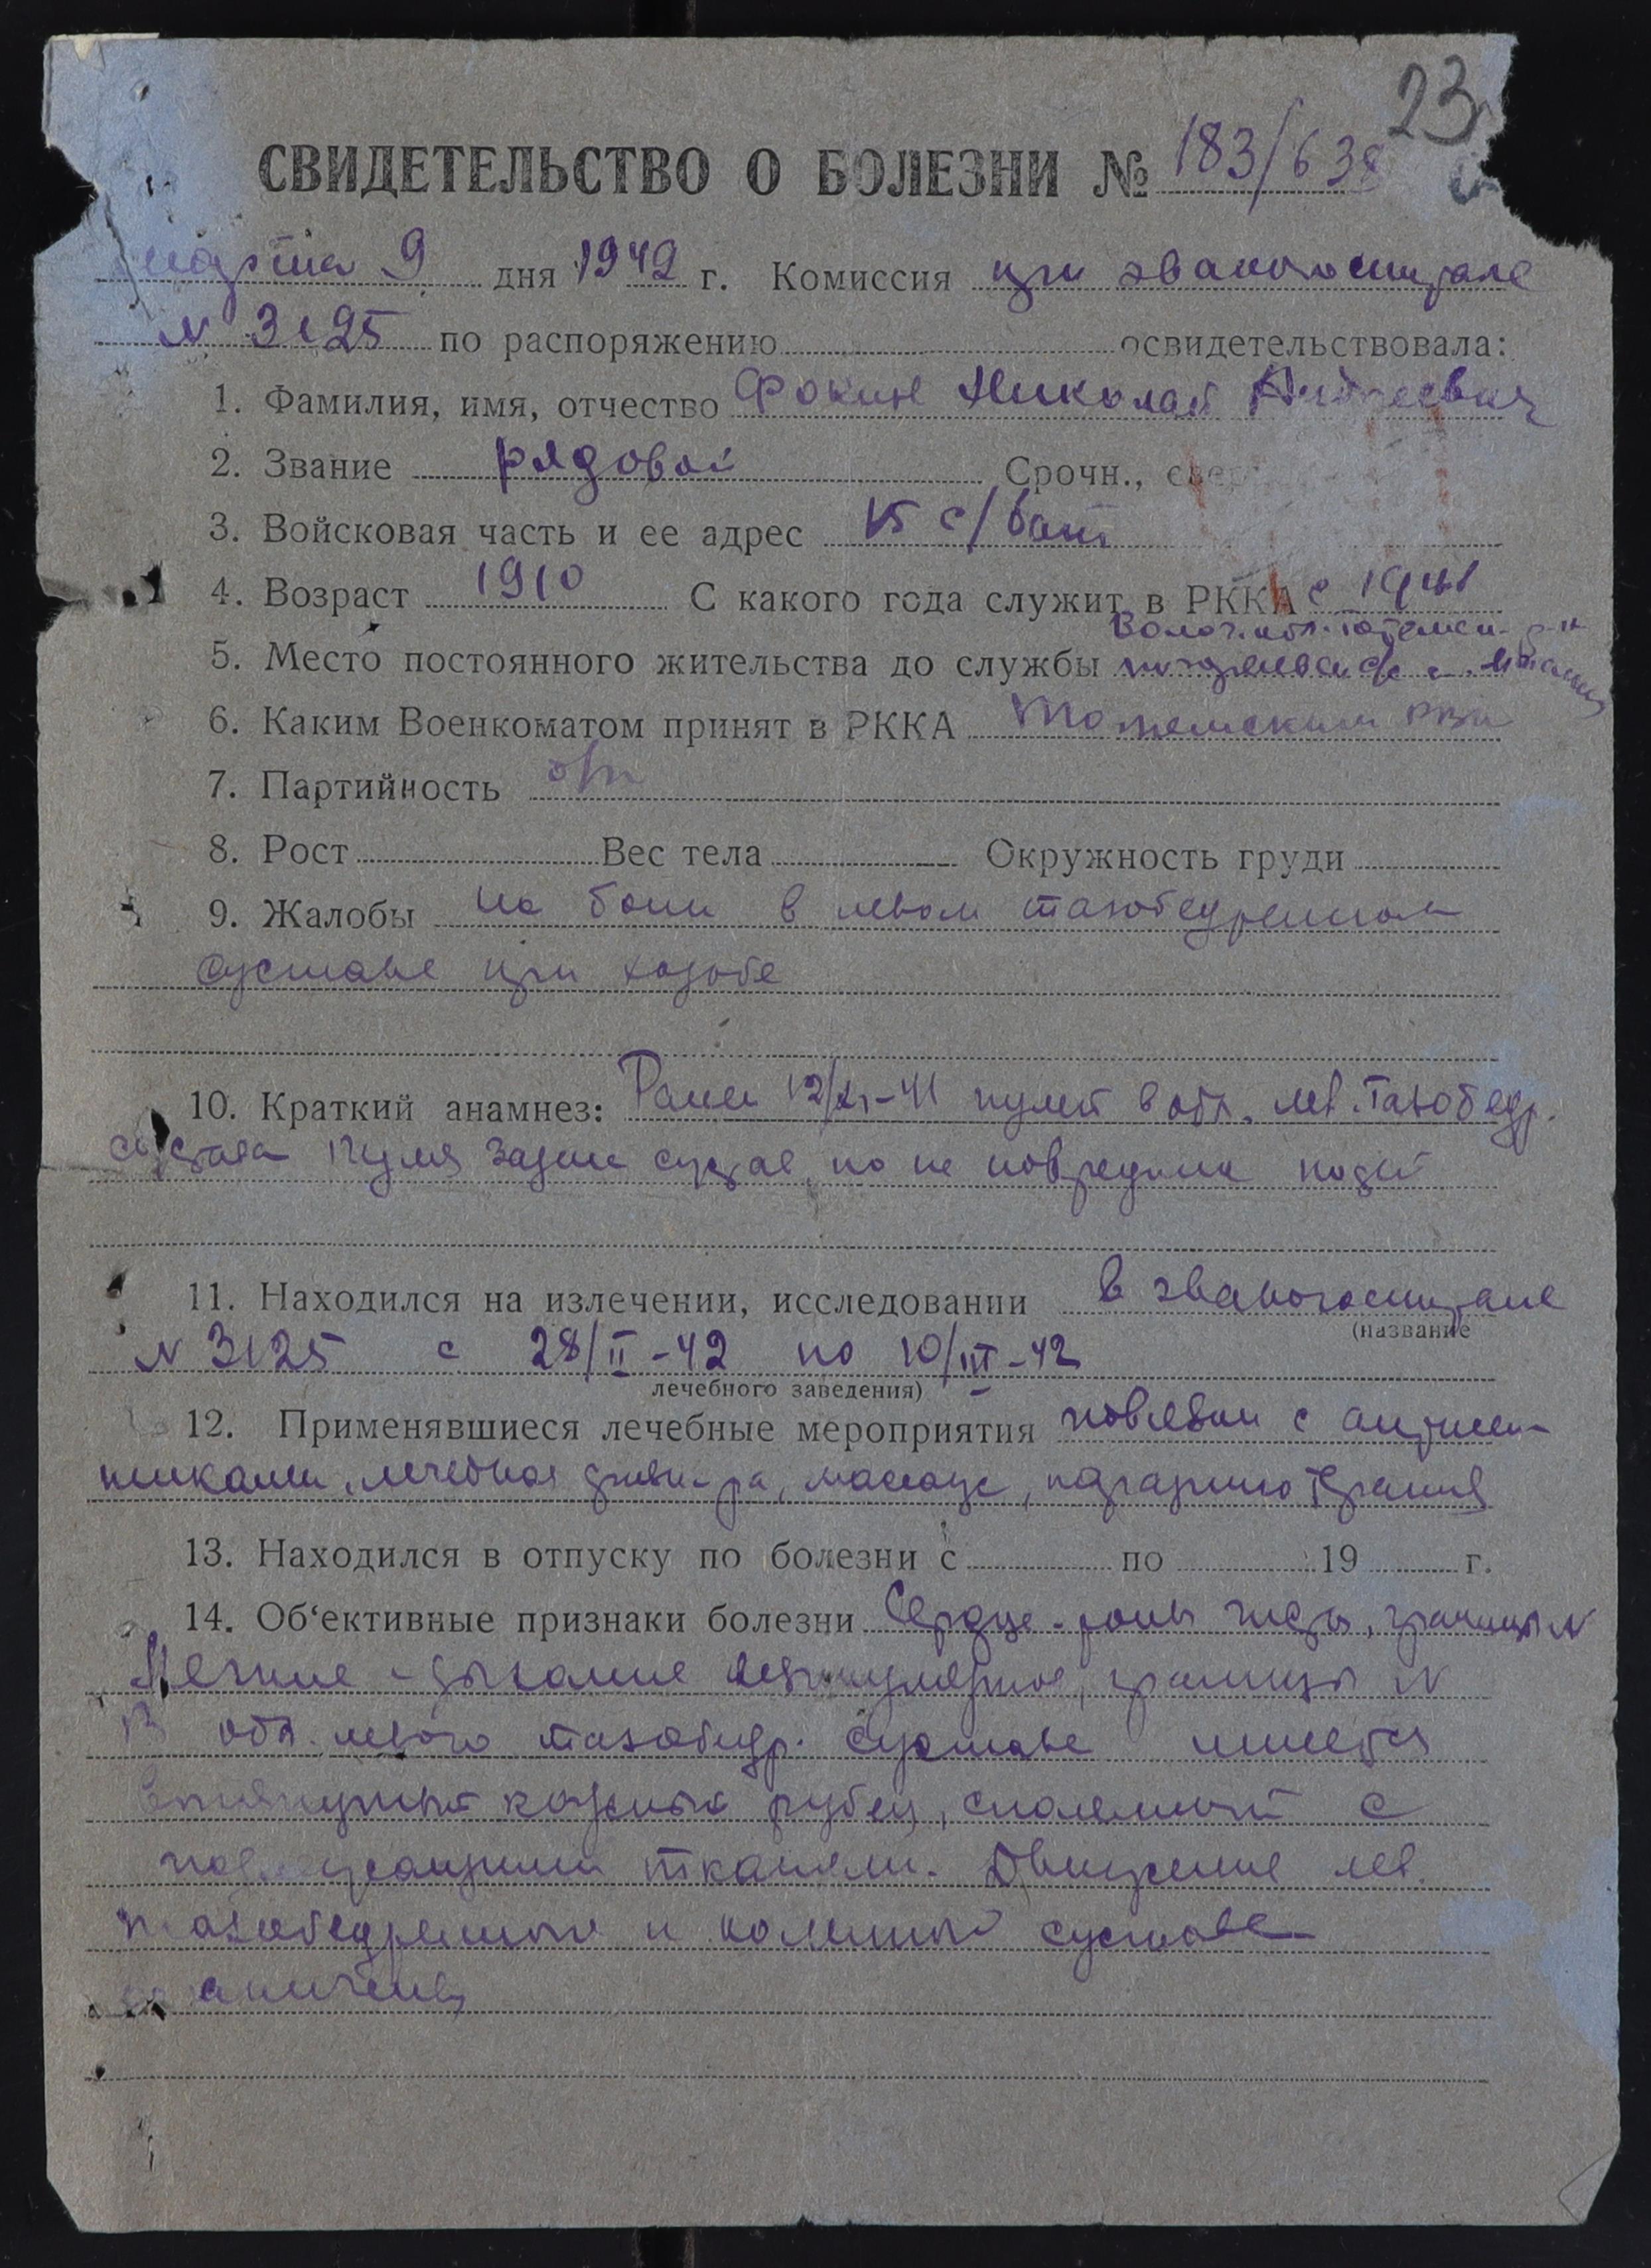 23
СВИДЕТЕЛЬСТВО О БОЛЕЗНИ № 183/638
марта 9 дня 1942 г. Комиссия при эвакогоспитале
N 3125 по распоряжению освидетельствовала:
1. Фамилия, имя, отчество Фокин Николай Андреевич
2. Звание рядовой Срочн., свер
3. Войсковая часть и ее адрес 15 с/бат
4. Возраст 1910 С какого года служит в РККА с 1941
Волог. обл. Тотемск. р-н
5. Место постоянного жительства до службы с/с
6. Каким Военкоматом принят в РККА Тотемским РВК
7. Партийность б/п
8. Рост Вес тела Окружность груди
9. Жалобы на боли в левом тазобедренном
суставе при ходьбе
10. Краткий анамнез: Ранен 12/XI-41 пулей в обл. лев. тазобедр.
сустава Пуля задела сустав, но не повредила
11. Находился на излечении, исследовании в эвакогоспитале
(название
N 3125 с 28/II-42 по 10/III-42
лечебного заведения)
12. Применявшиеся лечебные мероприятия повязки с антисеп-
тиками, лечебная физк-ра, массаж, парафинотерапия
13. Находился в отпуску по болезни с по 19 г.
14. Об‘ективные признаки болезни Сердце - тоны чисты, границы N
Легкие - дыхание везикулярное, границы N
В обл. левого тазобедр. суставе имеется
втянутый кожный рубец, спаянный с
подлежащими тканями. Движение лев.
тазобедренный и коленный суставе
ограничены